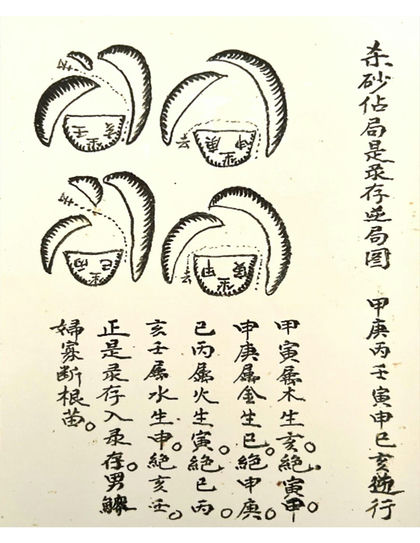 杀砂佔局是录存逆局図
甲庚丙壬寅申巳亥逆行
甲寅属木生亥。絶寅甲。
申庚属金生巳。絶申庚。
巳丙属火生寅。絶巳丙。
亥壬属水生申。絶亥壬。
正是录存入录存。男鰥
婦寡断根苗。